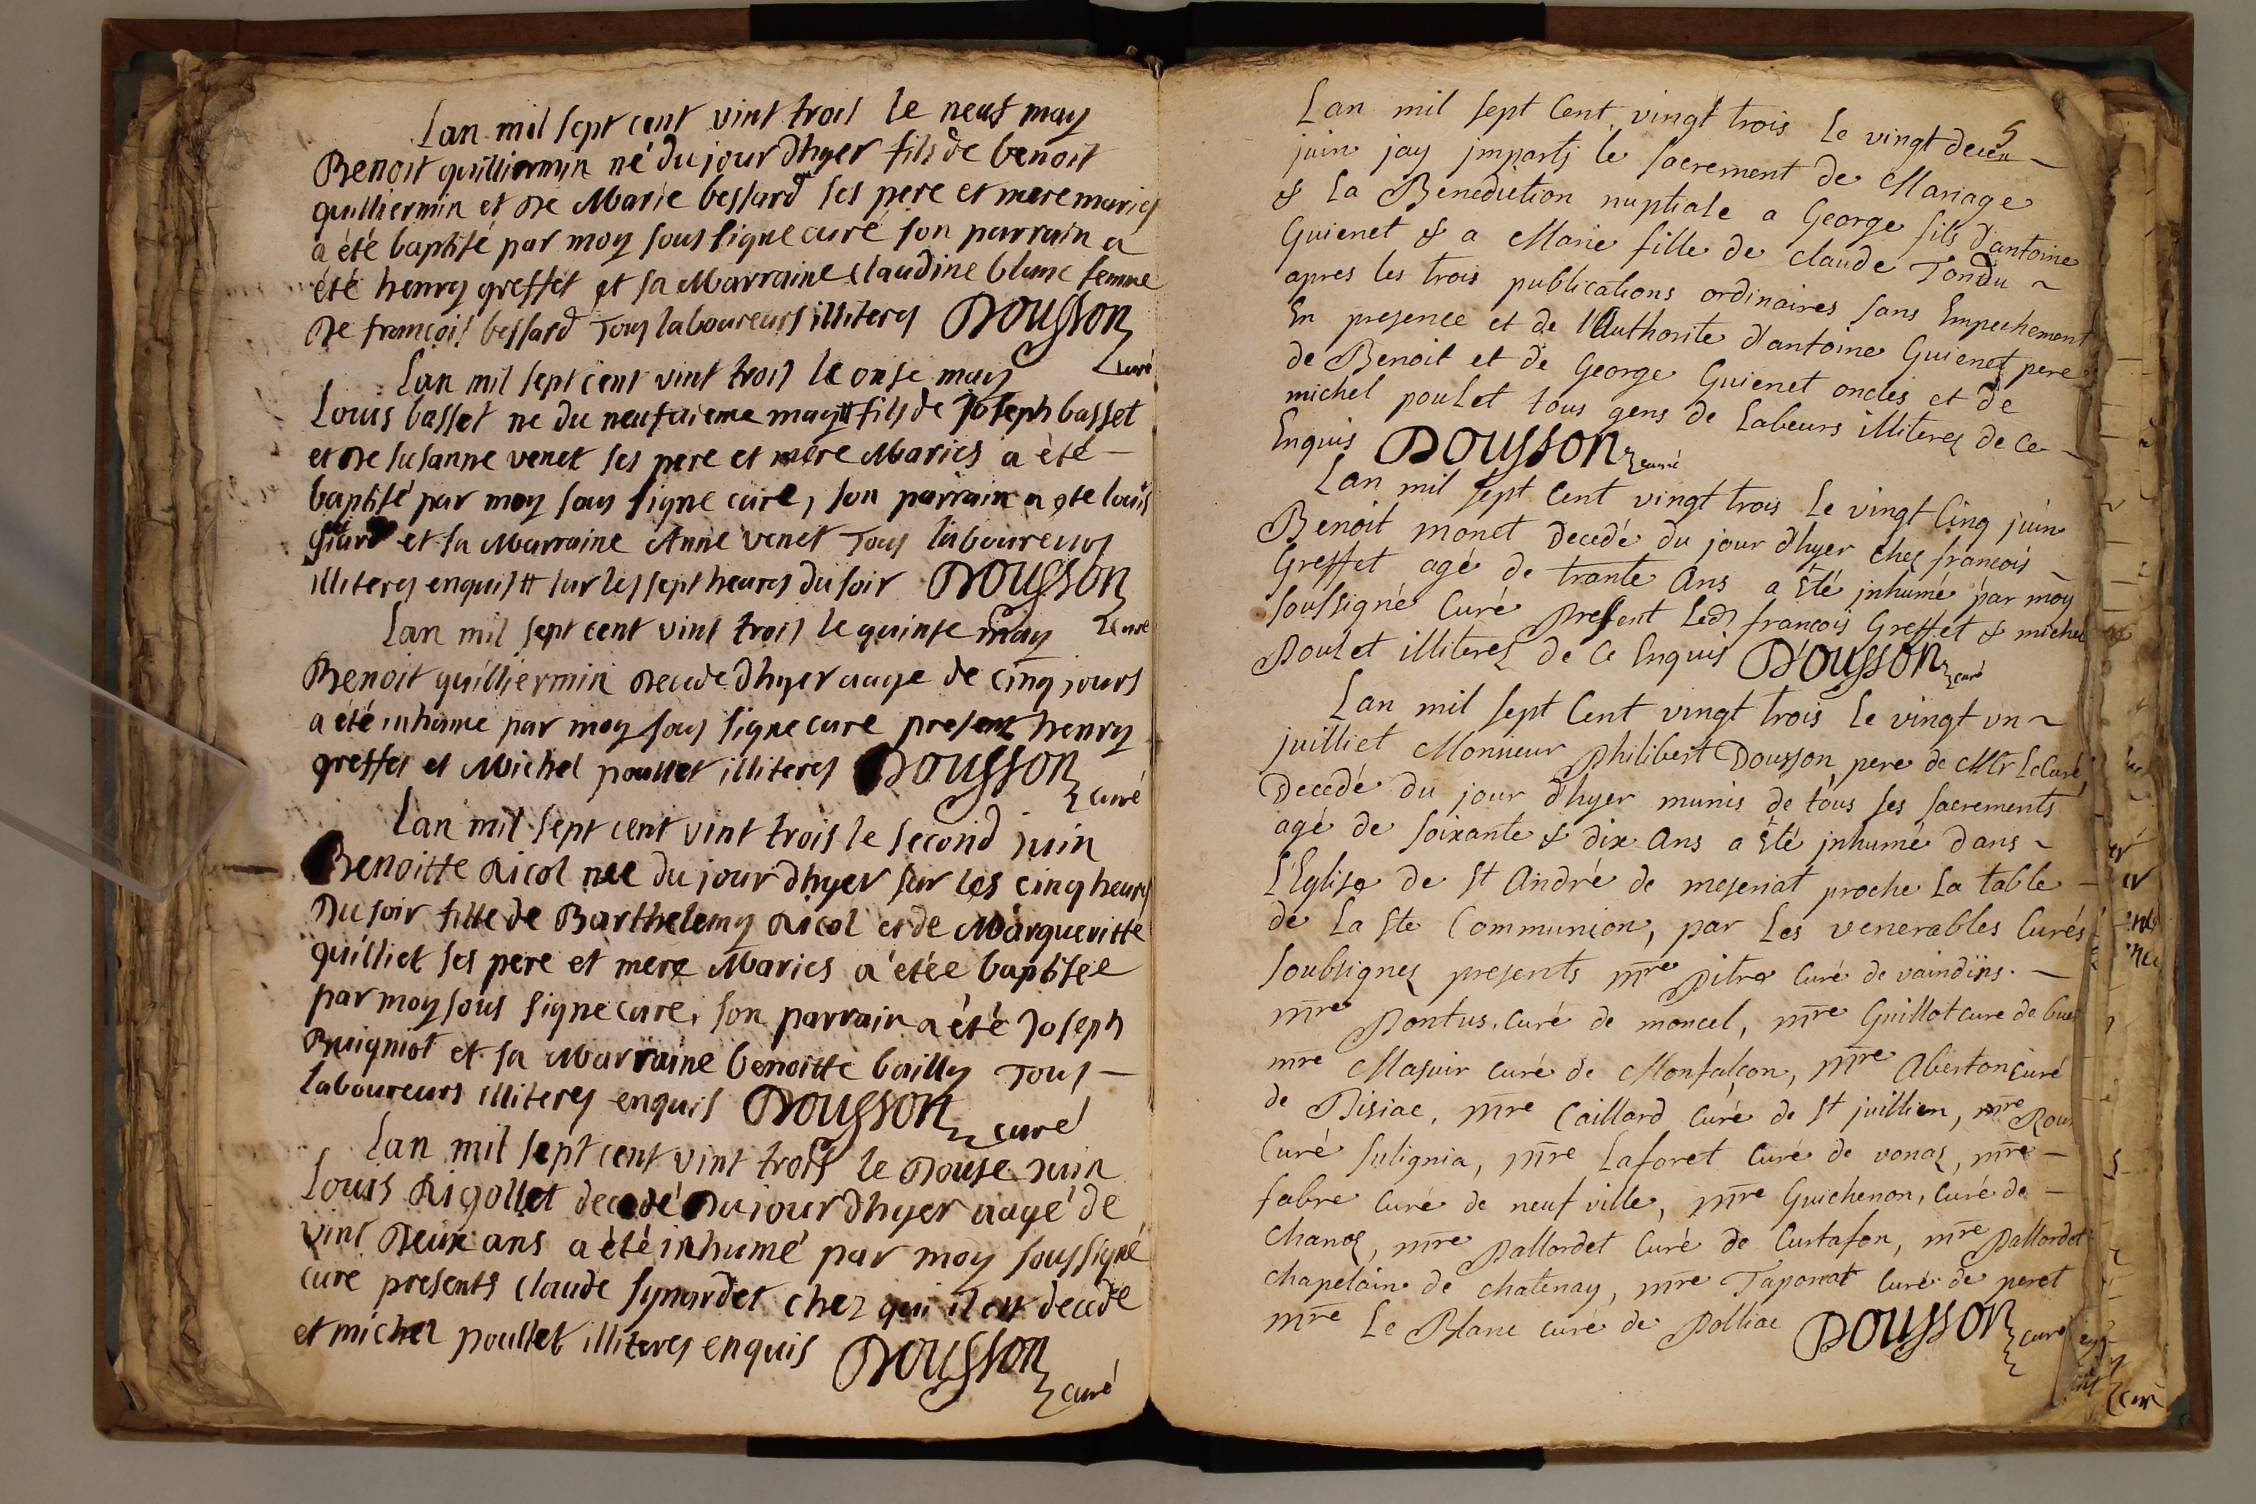 Lan mil sept cent vint trois le neuf may
Benoit quilliermin né du jour dhyer fils de benoit
quilliermin et de Marie bessard ses pere et mere maries
a été baptisé par moy sous signe curé son parrain a
été henry greffet et sa Marraine claudine blanc femme
de francois bessard Tous laboureurs illiteres Dousson
curé
Lan mil sept cent vint trois le onse may
Louis basset ne du neufvieme may # fils de Joseph basset
et de susanne venet ses pere et mere Maries a èté –
baptisé par moy sous signe curé, son parrain a ete louis
et sa Marraine Anne venet Tous laboureurs
illiteres enquis # sur les sept heures du soir Dousson
curé
Lan mil sept cent vint trois le quinse may
Benoit quilliermin decede dhyer aage de cinq jours
a été inhume par moy sous signe cure present henry
greffet et Michel poullet illiteres Dousson
curé
Lan mil sept cent vint trois le second juin
Benoitte Ricol neé du jour dhyer sur les cinq heures
du soir fille de Barthelemy Ricol et de Margueritte
quilliet ses pere et mere Maries a étée baptisée
par moy sous signe cure, son parrain a été Joseph
Buigniot et sa Marraine benoitte bailly Tous –
laboureurs illiteres enquis Dousson curé
Lan mil sept cent vint trois le douse Juin
Louis Rigollet decedé du jour dhyer aagé de
vint deux ans a été inhumé par moy soussigné
cure presents claude synardet chez qui il est décédé
et michel poullet illiteres enquis Dousson
curé
5
Lan mil sept Cent vingt trois Le vingt deux
juin jay jmparti le sacrement de Mariage
& La Benediction nuptiale a George fils d'antoine
Guienet & a Marie fille de claude Tondu ~
apres les trois publications ordinaires sans Empechement
En presence et de l'Authorite d'antoine Guienet pere
de Benoit et de George Guienet oncles et de
michel poulet tous gens de Labeurs illiteres de ce –
Enquis Dousson curé
Lan mil sept Cent vingt trois Le vingt Cinq juin
Benoit monet Decedé du jour dhyer chez francois
Greffet agé de trante Ans a Eté jnhumé par moy
soussigné Curé Present Ledt francois Greffet & michel
Poulet illiteres de Ce Enquis Dousson curé
Lan mil sept Cent vingt trois Le vingt un ~
juilliet Monsieur Philibert Dousson pere de Mr Le Curé
Decedé du jour d'hyer munis de tous ses sacrements
agé de soixante & dix Ans a Eté jnhumé dans ~
L'Eglise de St André de meseriat proche La table –
de La Ste Communion, par Les venerables Curés
soubsignez presents mre Pitre Curé de vaindins. –
mre Pontus, curé de moncel, mre Guillot cure de
mre Masuir curé de Monfalcon, mre Abertoncuré
de Pisiac, mre Caillard Curé de St juillien, mre
Curé sulignia, mre Laforet Curé de vonas, mre –
fabre Curé de neuf ville, mre Guichenon, Curé de –
Chanoz, mre Pallordet Curé de Curtafon, mre Pallordet
chapelain de chatenay, mre Taponat Curé de peret
mre Le Blanc curé de Polliac Dousson curé